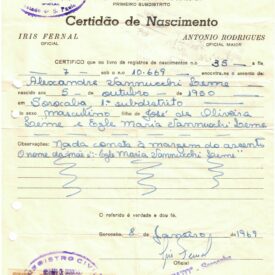 PRIMEIRO SUBDISTRITO
Certidão de Nascimento
IRIS FERNAL
OFICIAL
ANTONIO RODRIGUES
OFICIAL MAIOR
CERTIFICO que no livro de registros de nascimentos n.o 38
7 sob o n.o 10.669 encontra-se o assento de:
Alexandre Vannucchi Leme
nascido em 5 de outubro de 1950
em Sorocaba 1º subdistrito
do sexo masculino filho de José de Oliveira
Leme e Egle Maria Vannucchi Leme
Observações: Nada consta à margem do assento
O nome da mãe é: "Egle Maria Vannucchi Leme"
O referido é verdade e dou fé.
Sorocaba, 8 de Janeiro de 1969
Oficial
REGISTRO CIVIL